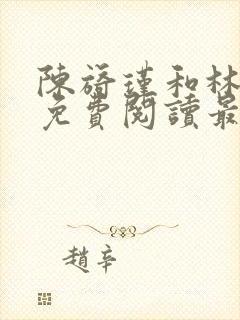 陳旖瑾和林
免費閱讀最
趙辛